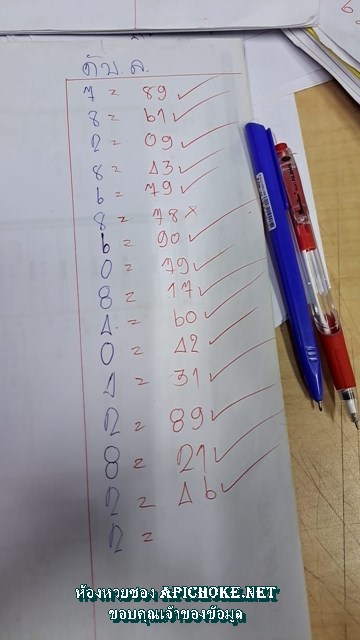 ดับ.ล.
7 = 89 ✓
8 = 61 ✓
2 = 09 ✓
8 = 43 ✓
6 = 79 ✓
8 = 78 ×
6 = 90 ✓
0 = 79 ✓
8 = 17 ✓
4 = 60 ✓
0 = 42 ✓
4 = 31 ✓
2 = 89 ✓
8 = 21 ✓
2 = 46 ✓
2 =
ห้องหวยซอง APICHOKE.NET
ขอบคุณเจ้าของข้อมูล